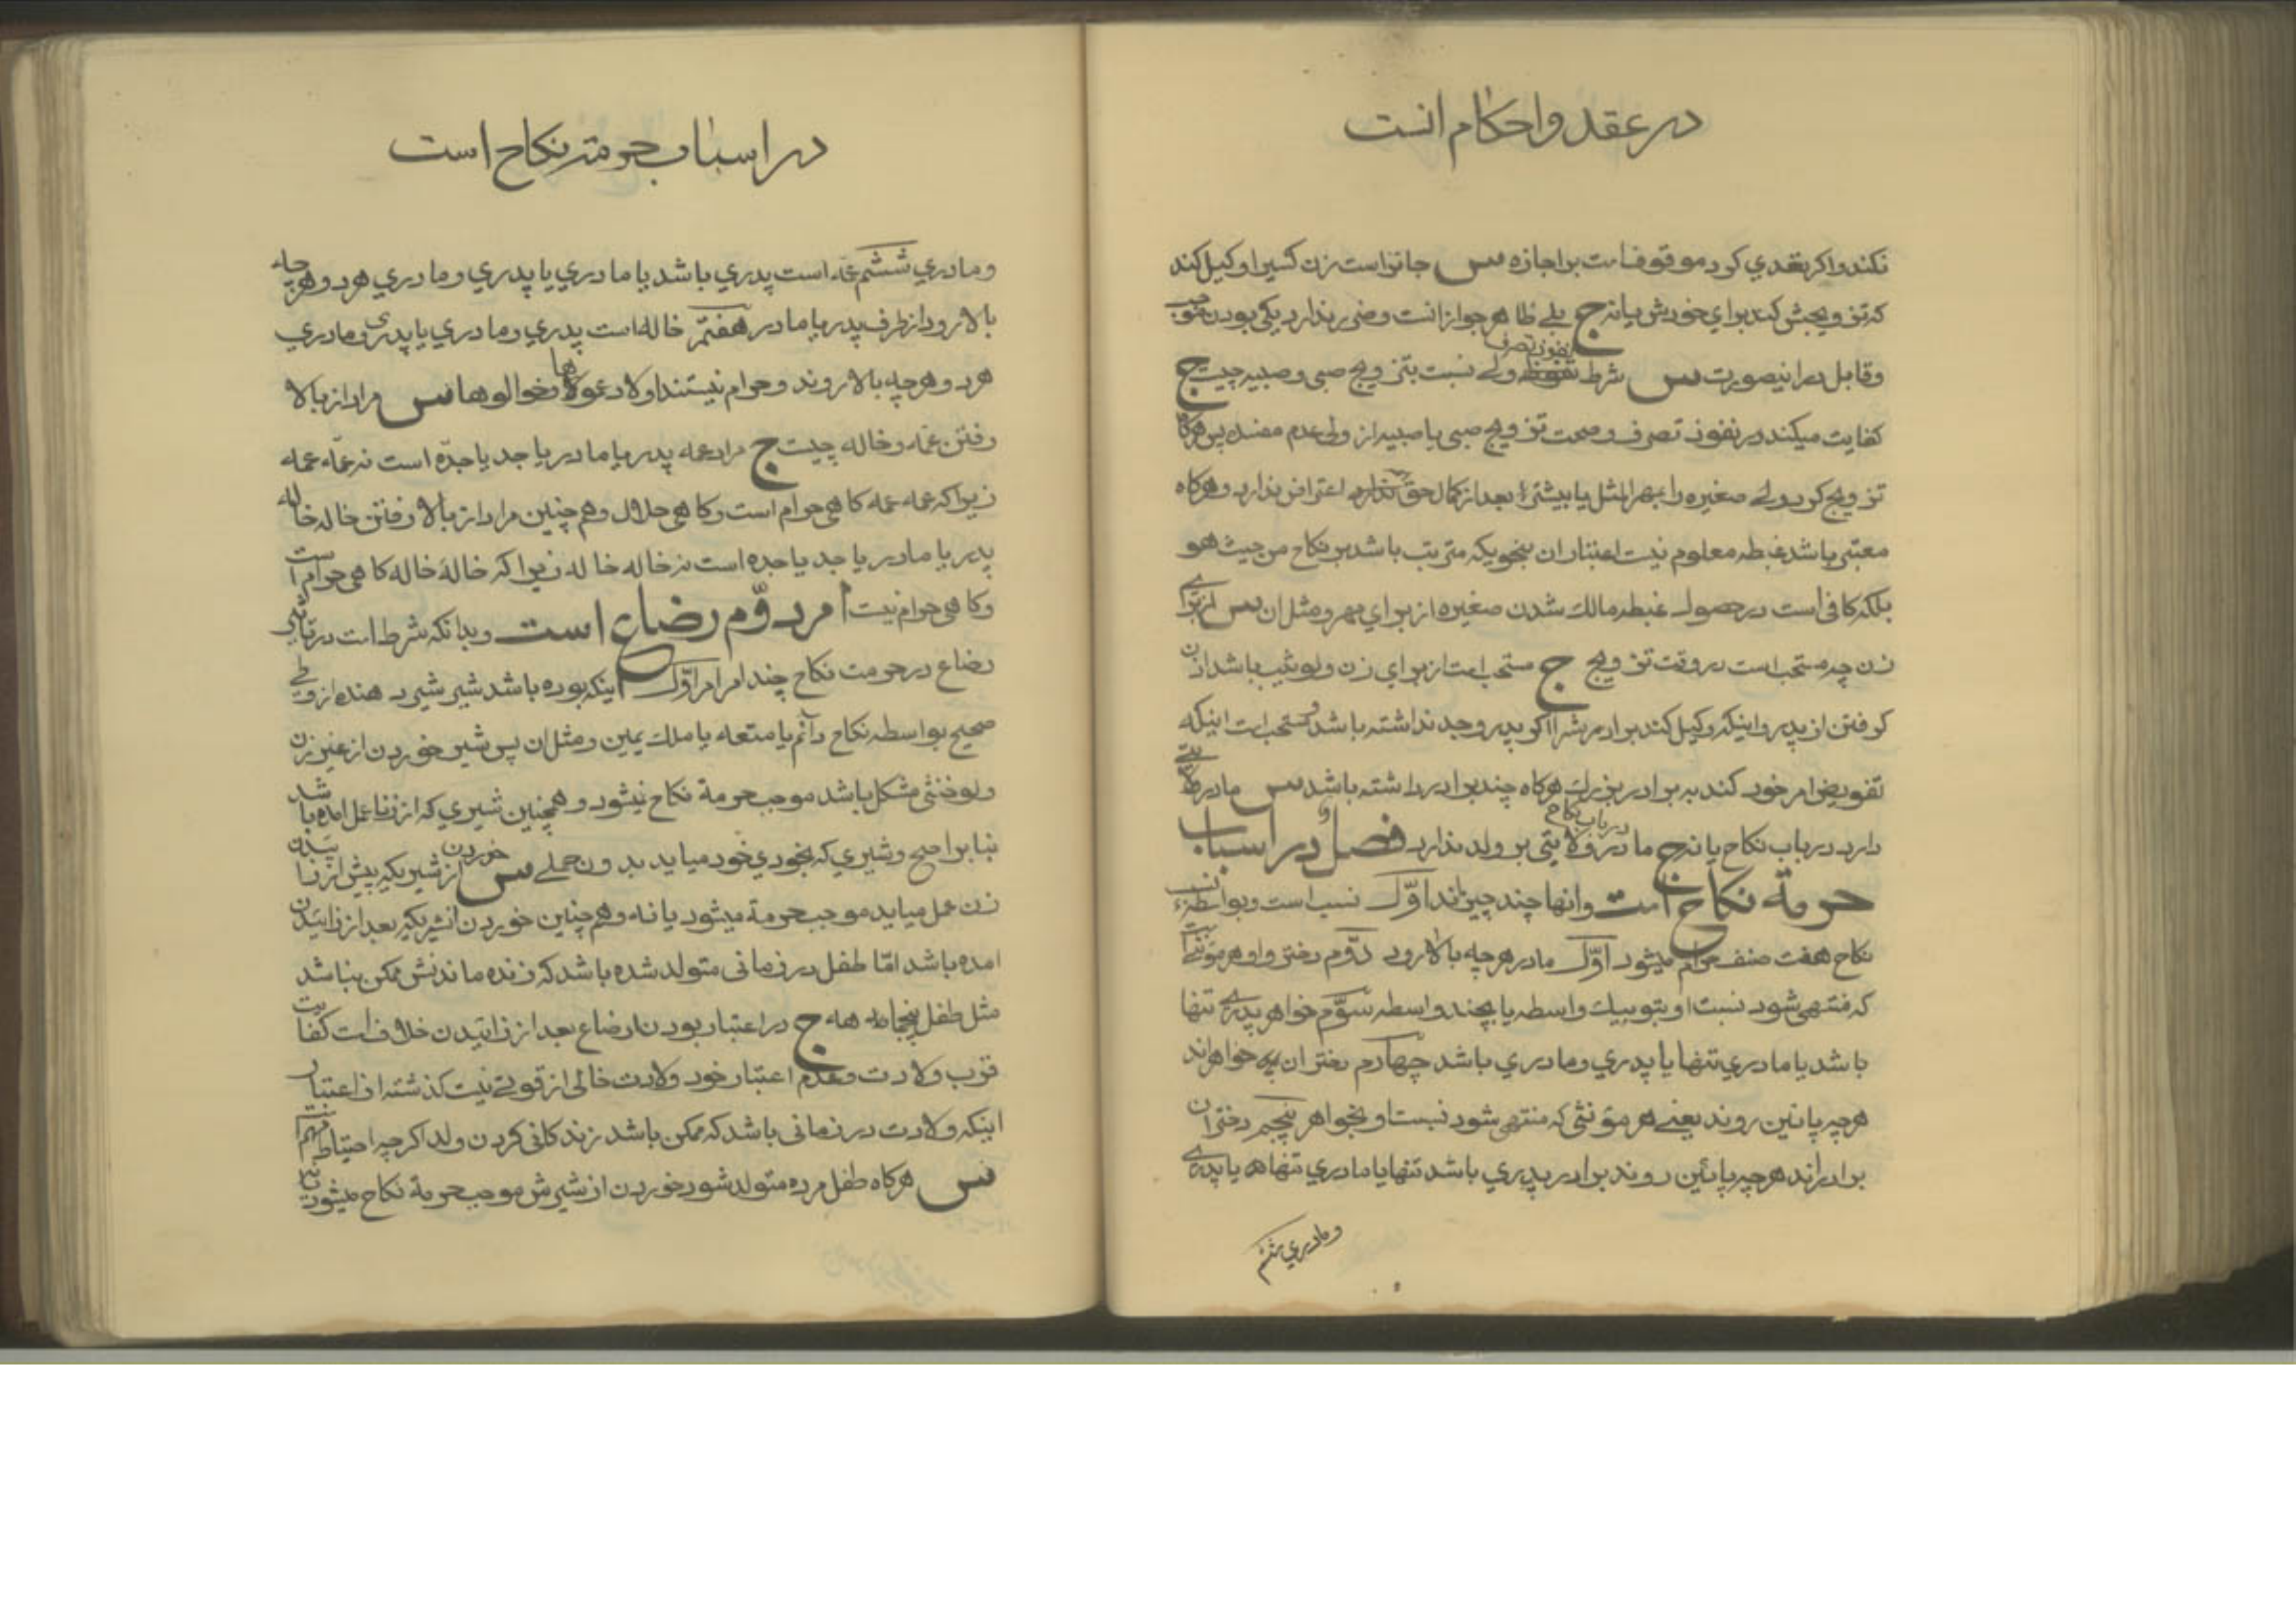 در عقد و احکام انست
نکند و اکر تعدي کرد موقوفا ست بر اجازه س جائز است زن کسیرا وکیل کند
که تزویجش کند براي خودش یا نه ج بلے ظاهر جواز انست و ضرر ندارد یکی بودن موجب
و قابل در اینصورت س شرط نفوذ تصرف ولے نسبت بتزویج صبی و صبیه چیت ج
کفایت میکند در نفوذ تصرف و صحت تزویج صبی یا صبیه از ولی عدم مفسده پس هرکاه
تزویج کرد ولے صغیره را بمهر المثل یا بیشتر بعد از کمال حق اعتراض ندارد و هرکاه
معتبر باشد غبطه معلوم نیت اعتبار ان بنحویکه مترتب باشد بر نکاح من حیث هو
بلکه کافی است در حصول غبطه مالك شدن صغیره از براي مهر و مثل ان س از براے
زن چه مستحب است در وقت تزویج ج مستحب است از براي زن ولو ثیب باشد اذن
کرفتن از پدر و اینکه وکیل کند برادرش را اکر پدر و جد نداشته باشد و مستحب است اینکه
تفویض امر خود کند به برادر بزرك هرکاه چند برادر داشته باشد س مادر ولایتے
دارد در باب نکاح یا نه ج مادر در باب نکاح ولایتی بر ولد ندارد فصل در اسباب
حرمة نکاح است و انها چند چیزاند اوّل نسب است و بواسطهٔ نسب
نکاح هفت صنف حرام میشود اوّل مادر هر چه بالا رود دوّم دختر و او هر مؤنثے است
که منتهی شود نسب او بتو بیك واسطه یا بچند واسطه سوّم خواهر پدرے تنها
باشد یا مادري تنها یا پدري و مادري باشد چهارم دختران خواهراند
هر چه پائین روند یعنے هر مؤنثی که منتهی شود نسب او بخواهر پنچم دختران
برادراند هر چه پائین روند برادر پدري باشد تنها یا مادري تنها یا پدرے
و مادري ششم
در اسباب حرمة نکاح است
و مادري ششم عمّه است پدري باشد یا مادري یا پدري و مادري هر دو و هر چه
بالا رود از طرف پدر یا مادر هفتم خاله است پدري و مادري یا پدري و مادري
هر دو هر چه بالا روند و حرام نیستند اولاد عموها و خالوها س مراد از بالا
رفتن عمّه و خاله چیت ج مراد عمه پدر یا مادر یا جد یا جدّه است نه عمّه عمه
زیرا که عمه عمه کاهی حرام است و کاهی حلال و هم چنین مراد از بالا رفتن خاله خاله
پدر یا مادر یا جد یا جده است نه خاله خاله زیرا که خالهٔ خاله کاهی حرام است
و کاهی حرام نیت امر دوّم رضاع است و بدانکه شرط است در تاثیر
رضاع در حرمت نکاح چند امر امر اوّل اینکه بوده باشد شیر شیر دهنده از وطی
صحیح بواسطه نکاح دائم یا متعه یا ملك یمین و مثل ان پس شیر خوردن از غیر زن
ولو خنثی مشکل باشد موجب حرمة نکاح نیشود و همچنین شیري که از زنا عمل امده باشد
بنا بر اصح و شیري که بخودي خود میاید بدون حملے س خوردن از شیریکه پیش از زائیدن
زن عمل میاید موجب حرمة میشود یا نه و هم چنین خوردن انشیریکه بعد از زائیدن
امده باشد امّا طفل در زمانی متولد شده باشد که زنده ماندنش ممکن نباشد
مثل طفل پنجماهه ج در اعتبار بودن رضاع بعد از زائیدن خلاف است کفایت
قرب ولادت و عدم اعتبار خود ولادت خالی از قوتے نیت کذشته از اعتبار
اینکه ولادت در زمانی باشد که ممکن باشد زندکانی کردن ولد اکرچه احتیاط
س هرکاه طفل مرده متولد شود خوردن از شیرش موجب حرمة نکاح میشود یا نه